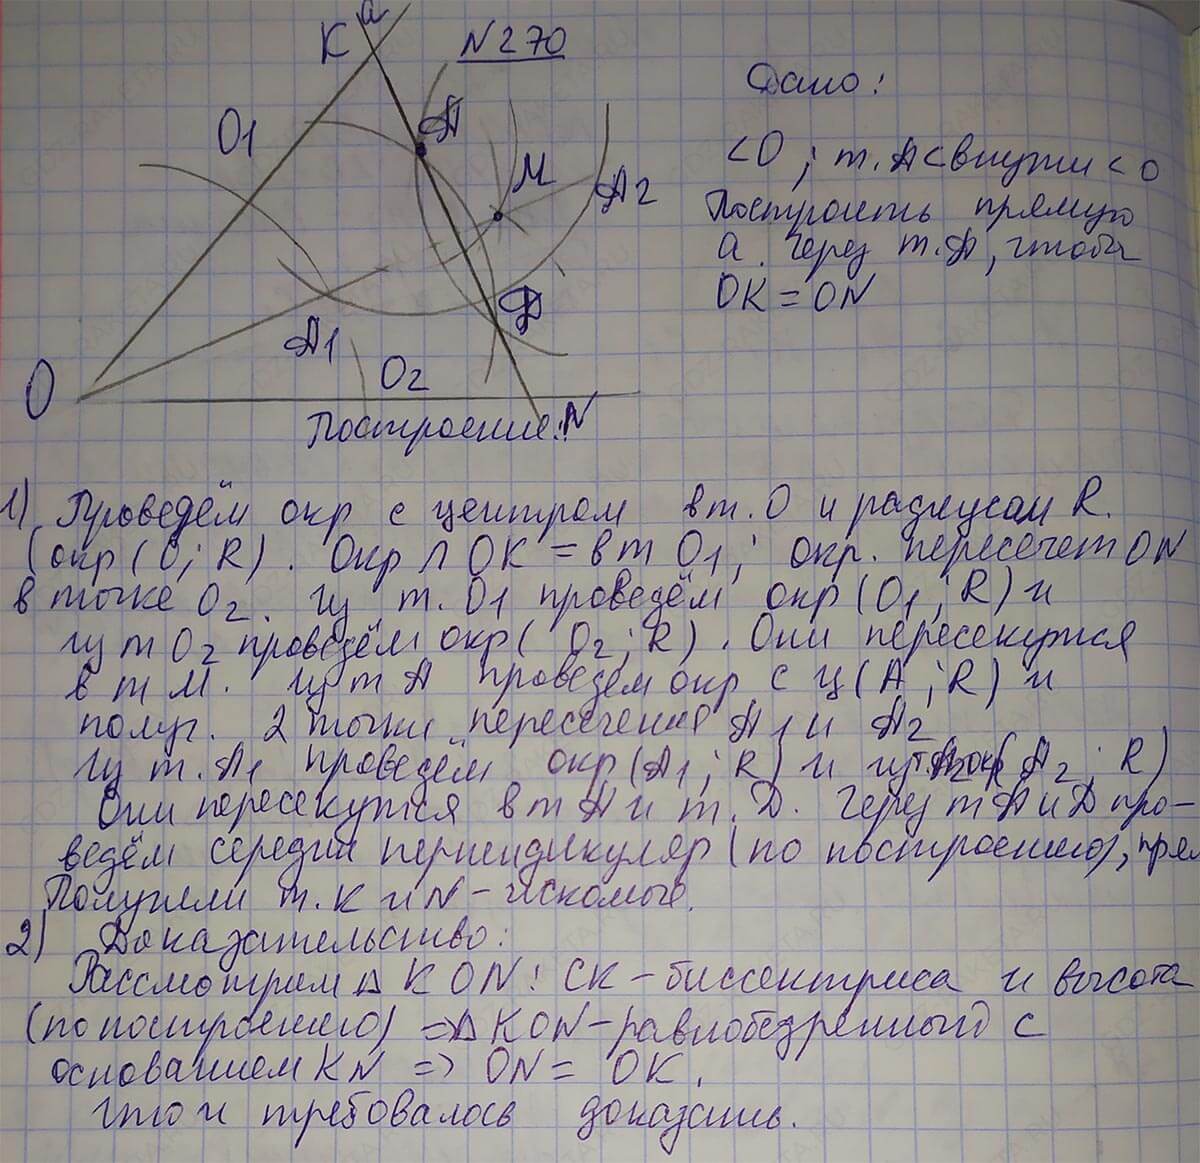 N 270
a
K
O1
A
M
A2
A1
D
O2
O
N
Дано:
<O; т. А внутри <O
Построить прямую
а. через т. А, чтобы
OK = ON
Построение:
1) Проведём окр с центром в т. О и радиусом R.
(окр (O; R). Окр ∩ OK = в т O1; окр. пересечет ON
в точке O2. Из т. O1 проведём окр (O1; R) и
из т O2 проведём окр (O2; R). Они пересекутся
в т М. Из т А проведём окр с ц (А; R) и
получ. 2 точки пересечения А1 и А2
Из т. А1 проведём окр (А1; R) и из окр (А2; R)
Они пересекутся в т А и т. Д. Через т А и Д про-
ведём середин перпендикуляр (по построению), прям
Получили т. К и N - искомые.
2) Доказательство:
Рассмотрим Δ KON: СК - биссектриса и высота
(по построению) => Δ KON - равнобедренный с
основанием KN => ON = OK.
что и требовалось доказать.